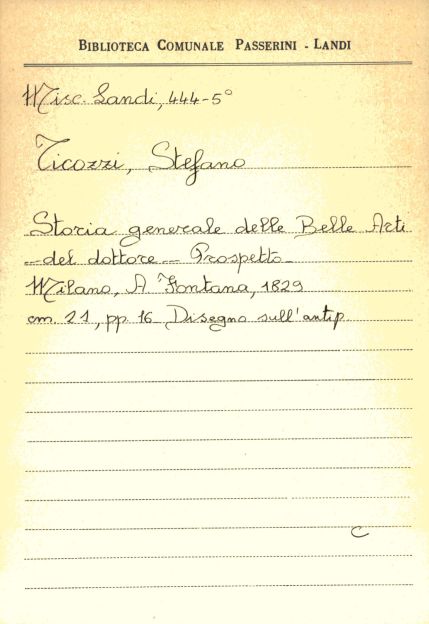 BIBLIOTECA COMUNALE PASSERINI - LANDI
Misc. Landi, 444-5°
Ticozzi, Stefano
Storia generale delle Belle Arti
- del dottore - Prospetto -
Milano, A Fontana, 1829
cm. 21, pp. 16 Disegno sull'antip.
C